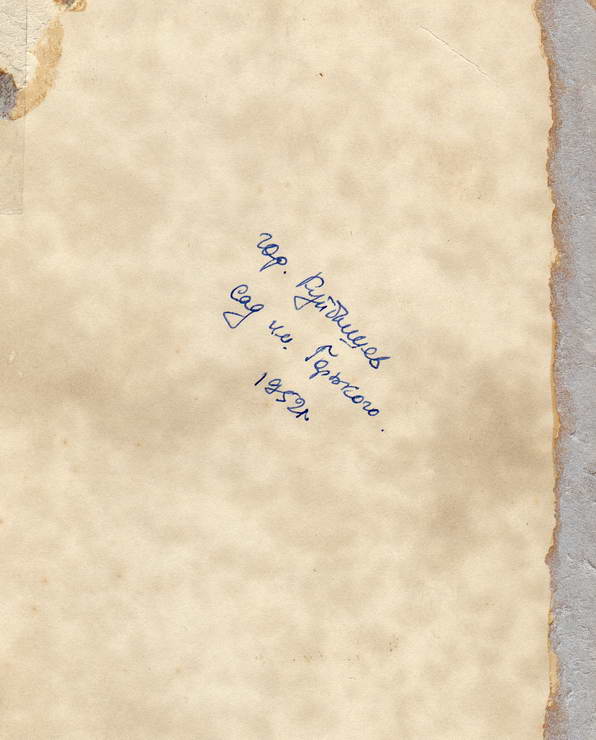 гор. Куйбышев
сад им. Горького.
1952г.